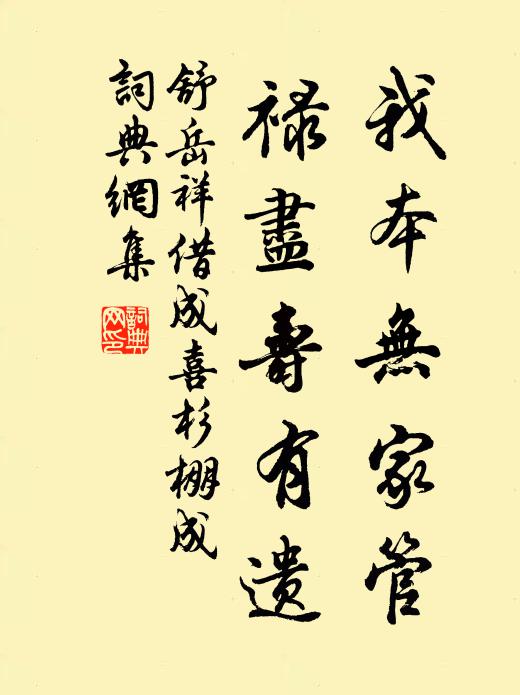 我本無家管
禄盡壽有遺
舒岳祥借成喜杉棚成
詞典網集
詞典网印